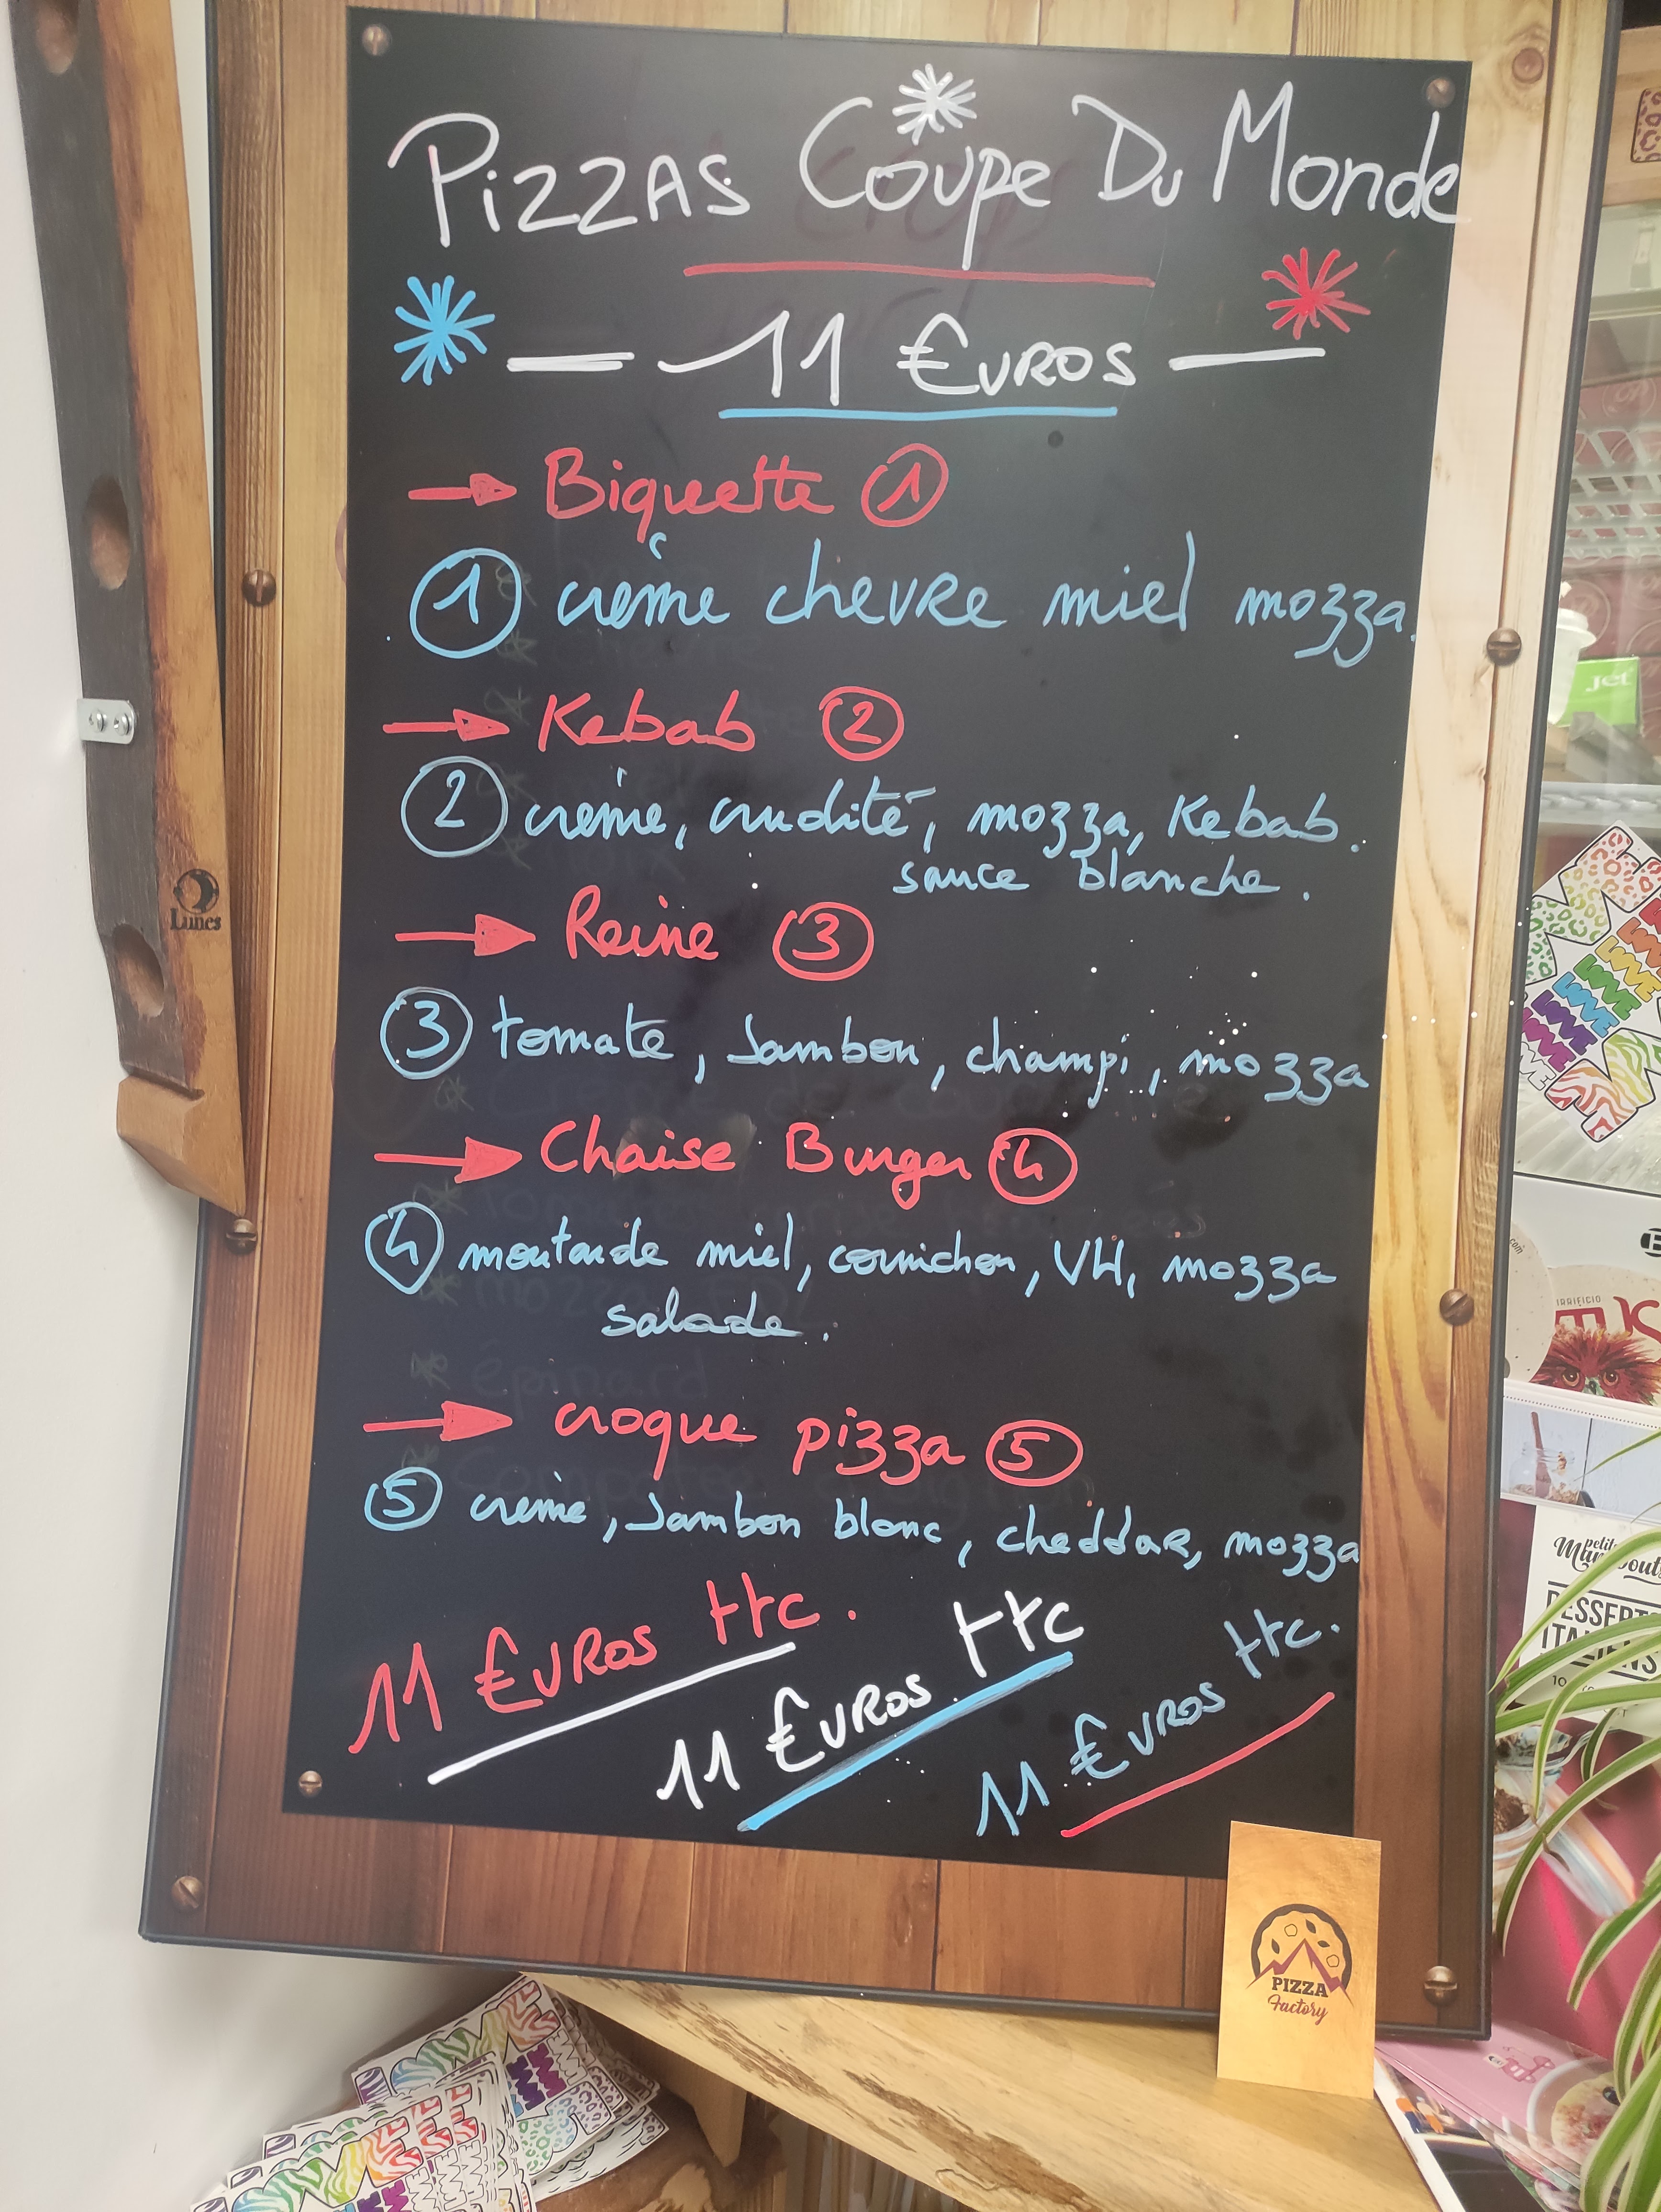 PizzAS Coupe Du Monde
11 €uros
Biquette 1
1 crème chevre miel mozza.
Kebab 2
2 crème, crudité, mozza, Kebab.
sauce blanche.
Reine 3
3 tomate, Jambon, champi, mozza
Chaise Burger 4
4 moutarde miel, cornichon, VH, mozza
salade.
croque pizza 5
5 crème, Jambon blanc, cheddar, mozza
11 €uros ttc.
11 €uros ttc
11 €uros ttc.
Lunes
PIZZA
Factory
Jet
épinard
petits
DESSERTS
LOVE